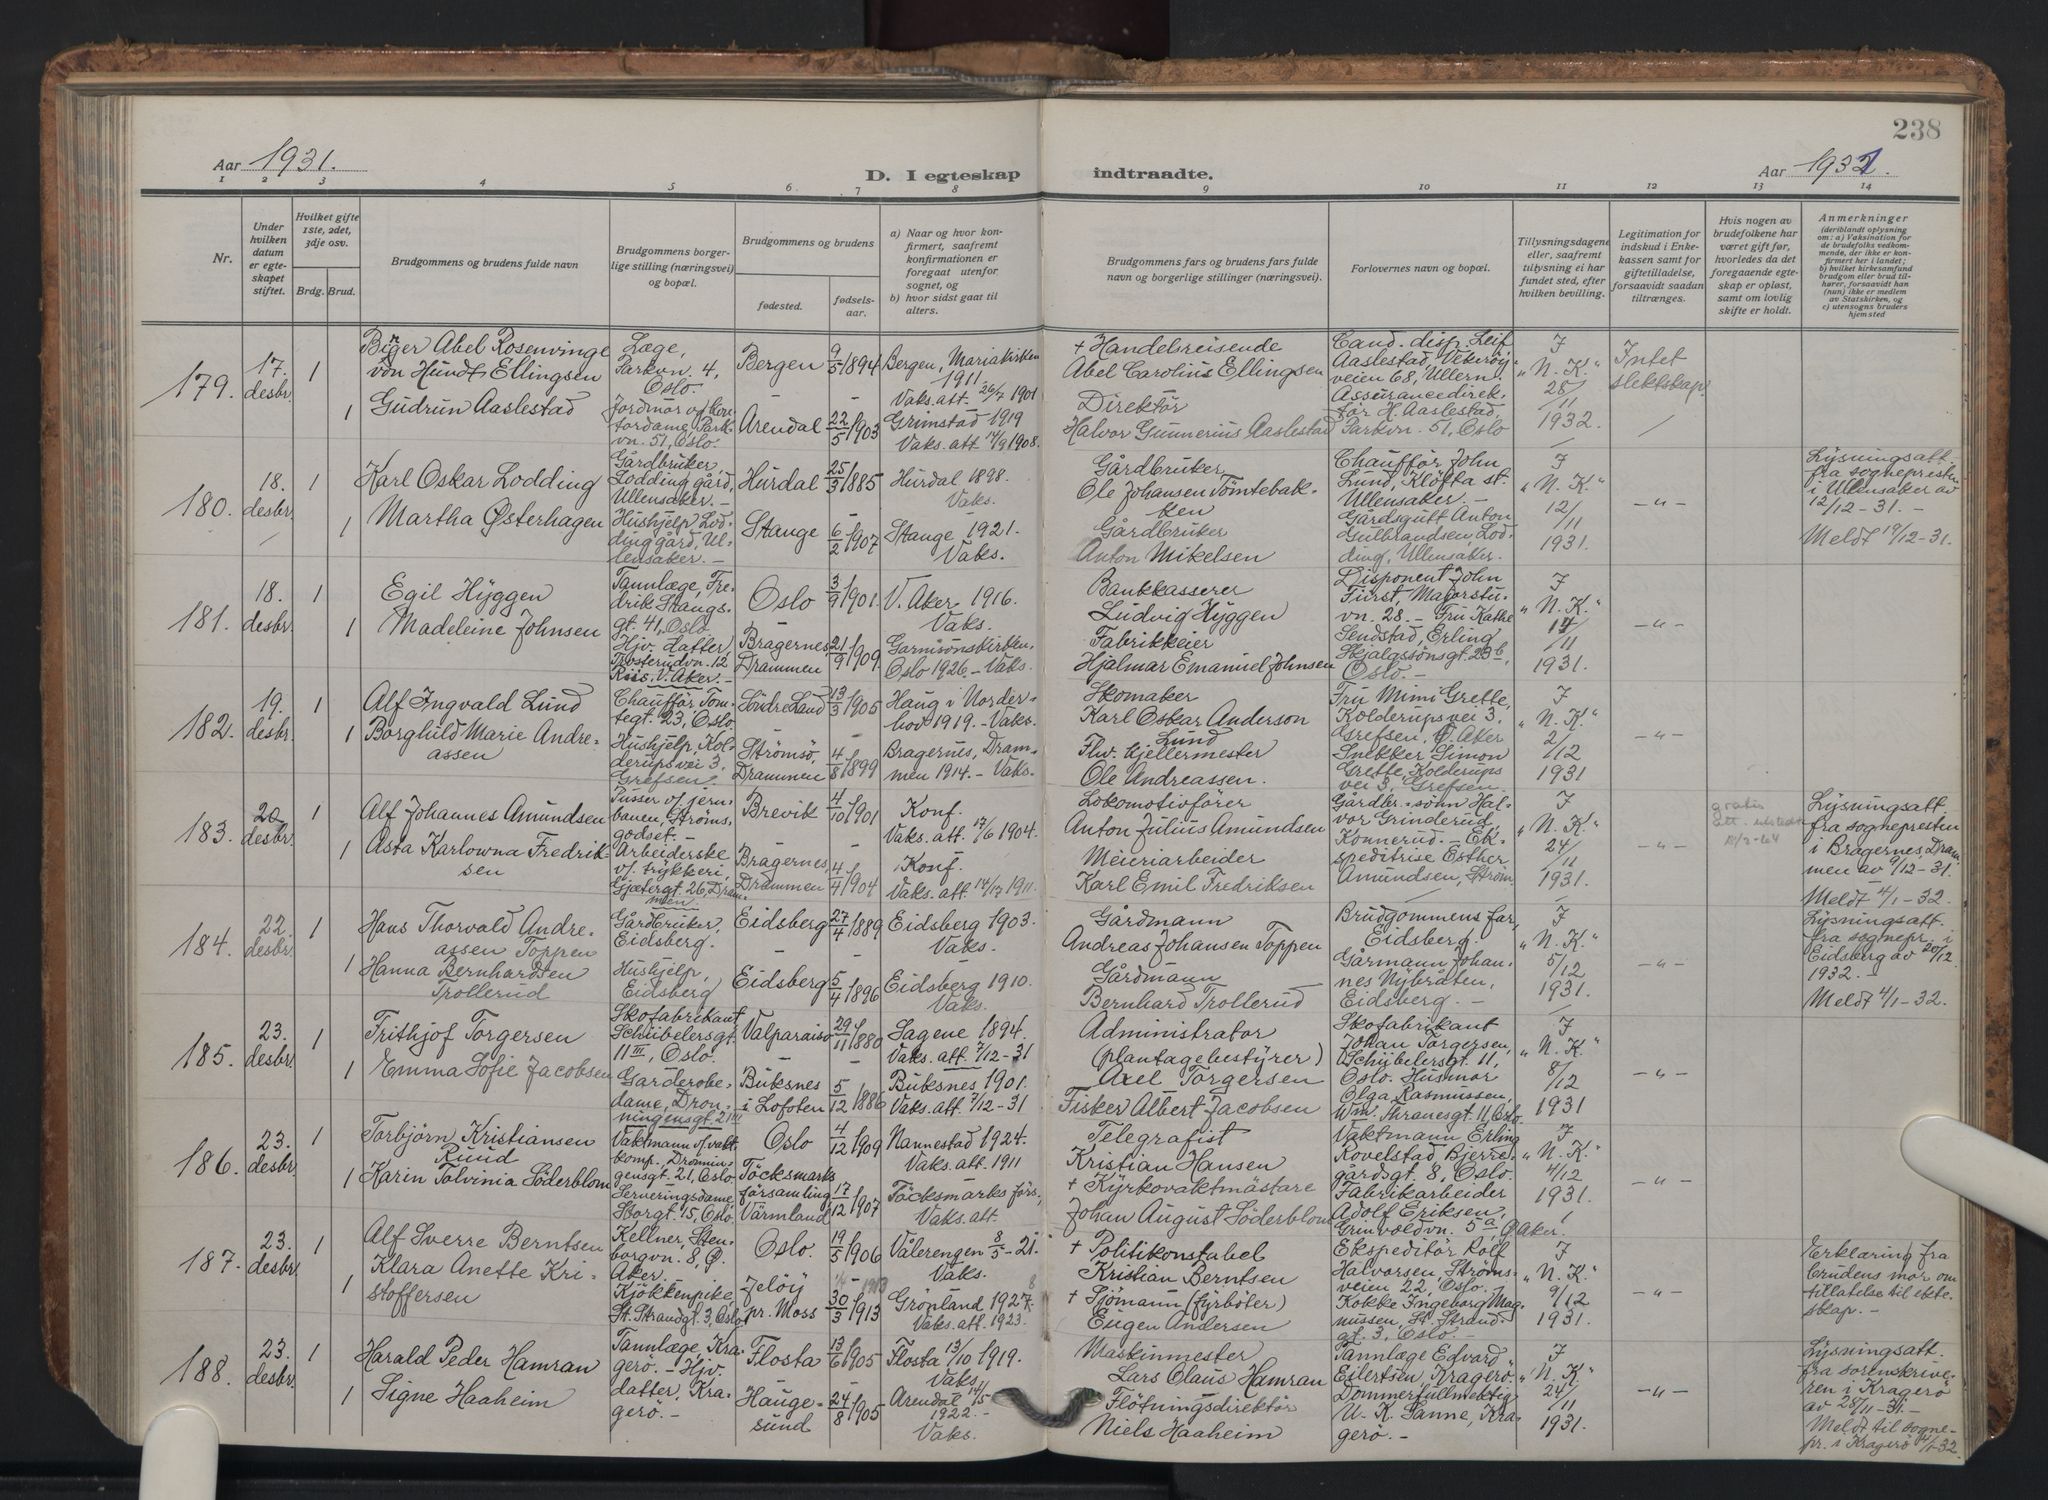 238
Aar 1931.
D. I egteskap indtraadte.
Aar 1931.
1 2 3 4 5 6. 7 8 9 10 11 12 13 14
Nr.
Under hvilken datum er egteskapet stiftet.
Hvilket gifte 1ste, 2det, 3dje osv.
Brdg. Brud.
Brudgommens og brudens fulde navn
Brudgommens borgerlige stilling (næringsvei) og bopæl.
Brudgommens og brudens
fødested.
fødselsaar.
a) Naar og hvor konfirmert, saafremt konfirmationen er foregaat utenfor sognet, og
b) hvor sidst gaat til alters.
Brudgommens fars og brudens fars fulde navn og borgerlige stillinger (næringsvei).
Forlovernes navn og bopæl.
Tillysningsdagene eller, saafremt tillysning ei har fundet sted, efter hvilken bevilling.
Legitimation for indskud i Enkekassen samt for giftetilladelse, forsaavidt saadan tiltrænges.
Hvis nogen av brudefolkene har været gift før, hvorledes da det foregaaende egteskap er opløst, samt om lovlig skifte er holdt.
Anmerkninger
(deriblandt oplysning om: a) Vaksination for de brudefolks vedkommende, der ikke er konfirmert her i landet; b) hvilket kirkesamfund brudgom eller brud tilhører, forsaavidt han (hun) ikke er medlem av Statskirken, og c) utensogns bruders hjemsted
179. 17. desbr. 1
Birger Abel Rosenvinge
von Hundt Ellingsen
Læge,
Parkvn. 4,
Oslo.
Bergen 9/5 1894
Bergen, Mariakirken
1911
Vaks. att. 26/7 1901
+ Handelsreisende
Abel Carolius Ellingsen
Cand. disp. Leif
Aaslestad, Vekerøy
veien 68, Ullern.
J
"N. K."
28/11
1932.
Intet
slektskap.
1 Gudrun Aaslestad
Arendal 22/5 1903
Grimstad 1919
Vaks. att. 14/9 1908.
Direktör
Halvor Gunnerius Aaslestad
Assurancedirek-
tör H. Aaslestad,
Parkvn. 51, Oslo
180. 18. desbr. 1
Karl Oskar Lodding
Gårdbruker,
Lodding gård,
Ullensaker. -
Hurdal 25/3 1885
Hurdal 1898.
Vaks.
Gårdbruker
Ole Johansen Tömtebak-
ken
Chauffør John
Lund, Klöfta st.
Ullensaker. -
J
"N. K."
12/11
1931.
- " -
Lysningsatt.
fra sognepresten
i Ullensaker av
12/12 - 31. -
Meldt 19/12 - 31.
1 Martha Østerhagen
Hushjelp, Lod-
ding gård, Ul-
lensaker. -
Stange 6/2 1907
Stange 1921.
Vaks.
Gårdbruker
Anton Mikelsen
Gårdsgutt Anton
Gulbrandsen, Lod-
ding, Ullensaker.
181. 18. desbr. 1
Egil Hyggen
Tannlæge, Fre-
drik Stangs-
gt. 41, Oslo
Oslo 3/9 1901.
V. Aker 1916.
Vaks.
Bankkasserer
Ludvig Hyggen
Disponent John
Fürst, Majorstu-
vn. 28. - Fru Kathe
J
"N. K."
14/11
1931.
- " -
1 Madeleine Johnsen
Hjv. datter,
Trosterudvn. 12
Riis, V. Aker. -
Bragernes
Drammen 21/9 1909.
Garnisonskirken,
Oslo 1926 - Vaks.
Fabrikkeier
Hjalmar Emanuel Johnsen
Sendstad, Erling
Skjalgssönsgt. 23b,
Oslo. -
182. 19. desbr. 1
Alf Ingvald Lund
Chauffør Tom-
tegt. 23, Oslo
Söndre Land 13/3 1905
Haug i Norder-
hov 1919. - Vaks.
Skomaker
Karl Oskar Anderson
Lund
Fru Mimi Grette,
Kolderups vei 3,
Grefsen, Ø. Aker
J
"N. K."
2/12
1931
- " -
1 Borghild Marie Andre-
assen
Hushjelp, Kol-
derups vei 3,
Grefsen.
Strömsö,
Drammen 4/8 1899
Bragernes, Dram-
men 1914. - Vaks.
Fhv. hjellermester
Ole Andreassen.
Snekker Simon
Grette, Kolderups
vei 3, Grefsen.
183. 20. desbr. 1
Alf Johannes Amundsen
Pusser v/ jern-
banen, Ströms-
godset. -
Brevik 4/10 1901
Konf.
Vaks. att. 17/6 1904.
Lokomotivförer
Anton Julius Amundsen
Gårdbr. sönn Hal-
vor Grinderud,
Konnerud. - Ek-
J
"N. K."
24/11
1931.
- " -
gratis
att. utstedt
Lysningsatt.
fra sognepresten
i Bragernes, Dram-
men av 9/12 - 31.
Meldt 4/1 - 32.
1 Asta Karlowna Fredrik-
sen
Arbeiderske
v/ trykkeri,
Gjætergt. 26, Dram-
men
Bragernes,
Drammen 4/4 1904
Konf.
Vaks. att. 14/12 1911.
Meieriarbeider
Karl Emil Fredriksen
speditrise Esther
Amundsen, Ström.
184. 22. desbr. 1
Hans Thorvald Andre-
assen Toppen
Gårdbruker,
Eidsberg.
Eidsberg 27/4 1889
Eidsberg 1903.
Vaks.
Gårdmann
Andreas Johansen Toppen
Brudgommens far,
Eidsberg.
J
"N. K."
5/12
1931.
- " -
Lysningsatt.
fra sognepr. i
Eidsberg av 20/12
1932. -
Meldt 4/1 - 32.
1 Hanna Bernhardsen
Trollerud
Hushjelp,
Eidsberg
Eidsberg 5/4 1896
Eidsberg 1910.
Vaks.
Gårdmann
Bernhard Trollerud
Gårmann Johan-
nes Nybråten,
Eidsberg. -
185. 23. desbr. 1
Frithjof Torgersen
Skofabrikant
Schübelersgt.
11 III, Oslo.
Valparaiso 29/11 1880
Sagene 1894.
Vaks. att. 7/12 - 31
Administrator
(plantagebestyrer)
Axel Torgersen
Skofabrikant
Johan Torgersen,
Schübelersgt. 11,
J
"N. K."
8/12
1931
- " -
1 Emma Sofie Jacobsen
Garderobe-
dame, Dron-
ningensgt. 21 III
Buksnes
i Lofoten 5/12 1886
Buksnes 1901.
Vaks. att. 7/12 - 31
Fisker Albert Jacobsen
Oslo. Husmor
Olga Rasmussen,
Wm. Thranesgt. 11, Oslo.
186. 23. desbr. 1
Torbjörn Kristiansen
Ruud
Vaktmann v/ vakt-
komp. Dronnin-
gensgt. 21, Oslo
Oslo 4/12 1909
Nannestad 1924.
Vaks. att. 1911
Telegrafist
Kristian Hansen
Vaktmann Erling
Rovelstad Bjerre-
gårdsgt. 8, Oslo.
J
"N. K."
4/12
1931.
- " -
1 Karin Tolvinia Söderblom
Serveringsdame
Storgt. 15, Oslo.
Töcksmarks
församling
Värmland 17/12 1907
Töcksmarks förs.,
Vaks. att.
+ Kyrkovaktmästare
Johan August Söderblom
Fabrikarbeider
Adolf Eriksen,
Grinvoldvn. 5a, Ø. Aker.
187. 23. desbr. 1
Alf Sverre Berntsen
Kellner, Sten-
borgvn. 8, Ø.
Aker.
Oslo. 19/5 1906
Vålerengen 8/5 - 21.
Vaks.
+ Politikonstabel
Kristian Berntsen
Ekspeditör Rolf
Halvorsen, Ströms-
veien 22, Oslo. -
J
"N. K."
9/12
1931.
- " -
Erklæring fra
brudens mor om
tillatelse til ekte-
skap. -
1 Klara Anette Kri-
stoffersen
Kjökkenpike
St. Strandgt. 3, Oslo
Jelöy
pr. Moss 30/3 1913
Grönland 1927.
Vaks. att. 1923.
+ Sjömann (fyrböter)
Eugen Andersen
Kokke Ingeborg Mag-
nussen, St. Strand-
gt. 3, Oslo. -
188. 23. desbr. 1
Harald Peder Hamran
Tannlæge, Kra-
gerö. - Hjv.
Flosta 13/6 1905
Flosta 13/10 1919.
Vaks.
Maskinmester
Lars Olaus Hamran
Tannlæge Edvard
Eilertsen, Kragerö
J
"N. K."
24/11
1931.
- " -
Lysningsatt.
fra sorenskrive-
ren i Kragerö
av 28/11 - 31. -
Meldt til sogne-
pr. i Kragerö 4/1-32.
1 Signe Haaheim
datter, Kra-
gerö. -
Hauge-
sund 24/8 1905
Arendal
1922. -
Vaks.
Flötningsdirektör
Niels Haaheim
Dommerfullmektig
U. K. Sanne, Kra-
gerö. -